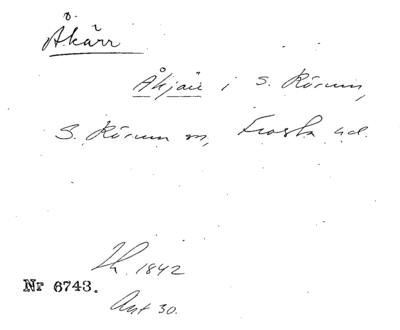 Ö.
Åkärr
Åkjär i S. Rörum,
S. Rörum sn, Frosta hd.
Lh. 1842
Nr 6743.
Ant 30.